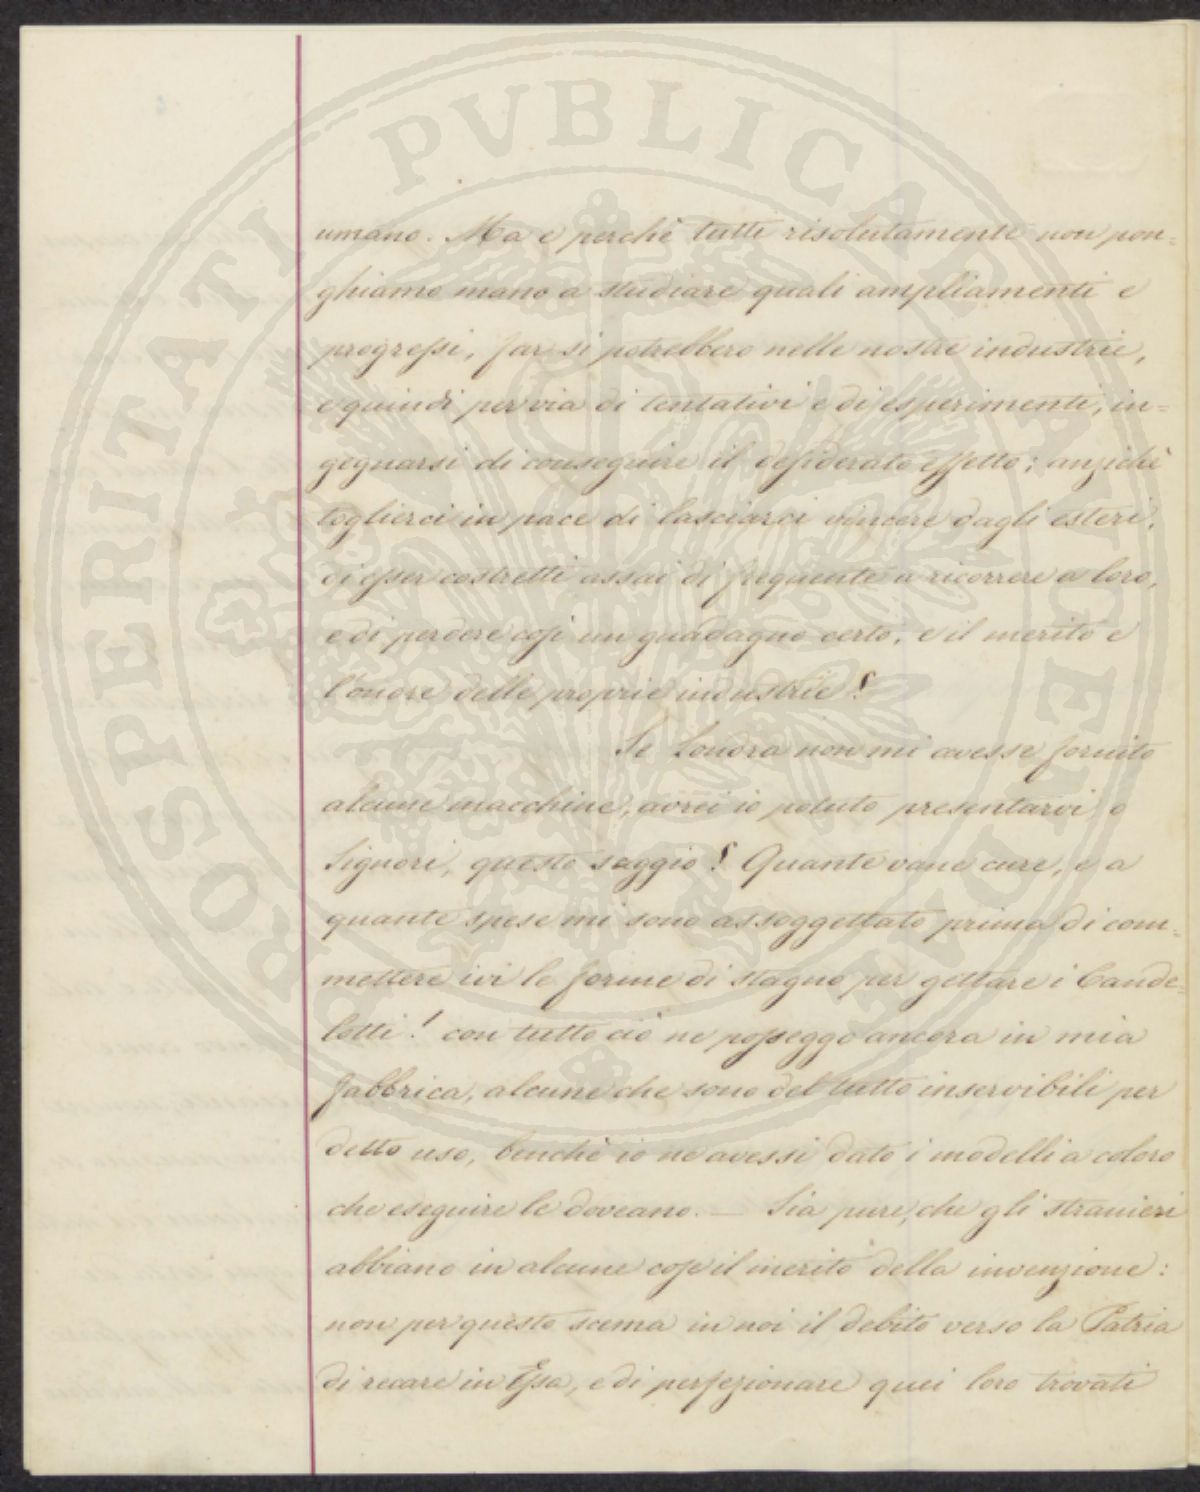 umano. Ma e perchè tutti risolutamente non pon=
ghiamo mano a studiare quali ampliamenti e
progressi, far si potrebbero nelle nostre industrie,
e quindi per via di tentativi e di esperimenti, in=
gegnarsi di conseguire il desiderato effetto; anzichè
toglierci in pace di lasciarci vincere dagli esteri,
di esser costretti assai di frequente a ricorrere a loro,
e di perdere così un guadagno certo, e il merito e
l'onore delle proprie industrie?
Se Londra non mi avesse fornito
alcune macchine, avrei io potuto presentarvi, o
Signori, questo saggio? Quante vane cure, e a
quante spese mi sono assoggettato prima di com=
mettere ivi le forme di stagno per gettare i Cande=
lotti! con tutto ciò ne posseggo ancora in mia
fabbrica, alcune che sono del tutto inservibili per
detto uso, benchè io ne avessi dato i modelli a coloro
che eseguire le doveano. — Sia pure, che gli stranieri
abbiano in alcune cose il merito della invenzione:
non per questo scema in noi il debito verso la Patria
di recare in Essa, e di perfezionare quei loro trovati
PROSPERITATI PVBLICAE AVGENDAE